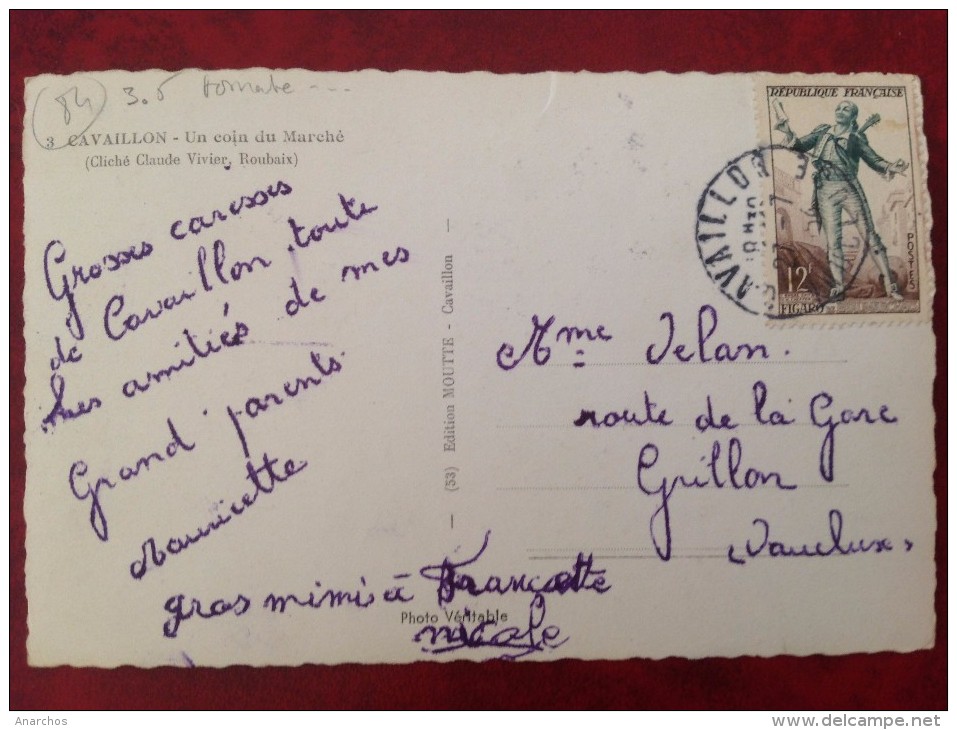 84 3.5 tomate ---
3 CAVAILLON - Un coin du Marché
(Cliché Claude Vivier, Roubaix)
Grosses caresses
de Cavaillon toute
mes amitiés de mes
Grand parents
Mauricette
gros mimi à Francette
nicole
Photo Véritable
(53) Edition MOUTTE - Cavaillon
RÉPUBLIQUE FRANÇAISE
POSTES
12F
FIGARO
CAVAILLON
VAUCLUSE
Mme Velan.
route de la Gare
Grillon
(Vaucluse)
Anarchos
delcampe.net